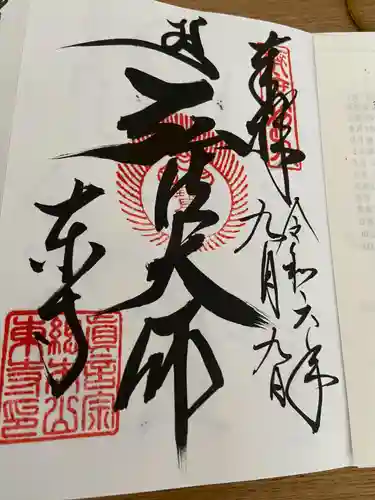 奉拝
令和六年
九月九日
弘法大師
東寺
真言宗
総本山
東寺印